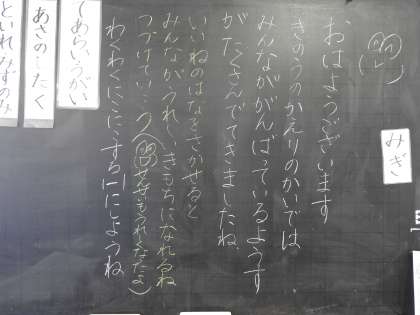 みぎ
おはようございます
きのうのかえりのかいでは
みんながんばっているようす
がたくさんでてきましたね
いいねのはなをさかせると
みんながうれしいきもちになれるね
つづけていこう
(せんせいもうれしくなったよ)
わくわくにこにこする1日にしようね
あさのしたく
といれ みずのみ